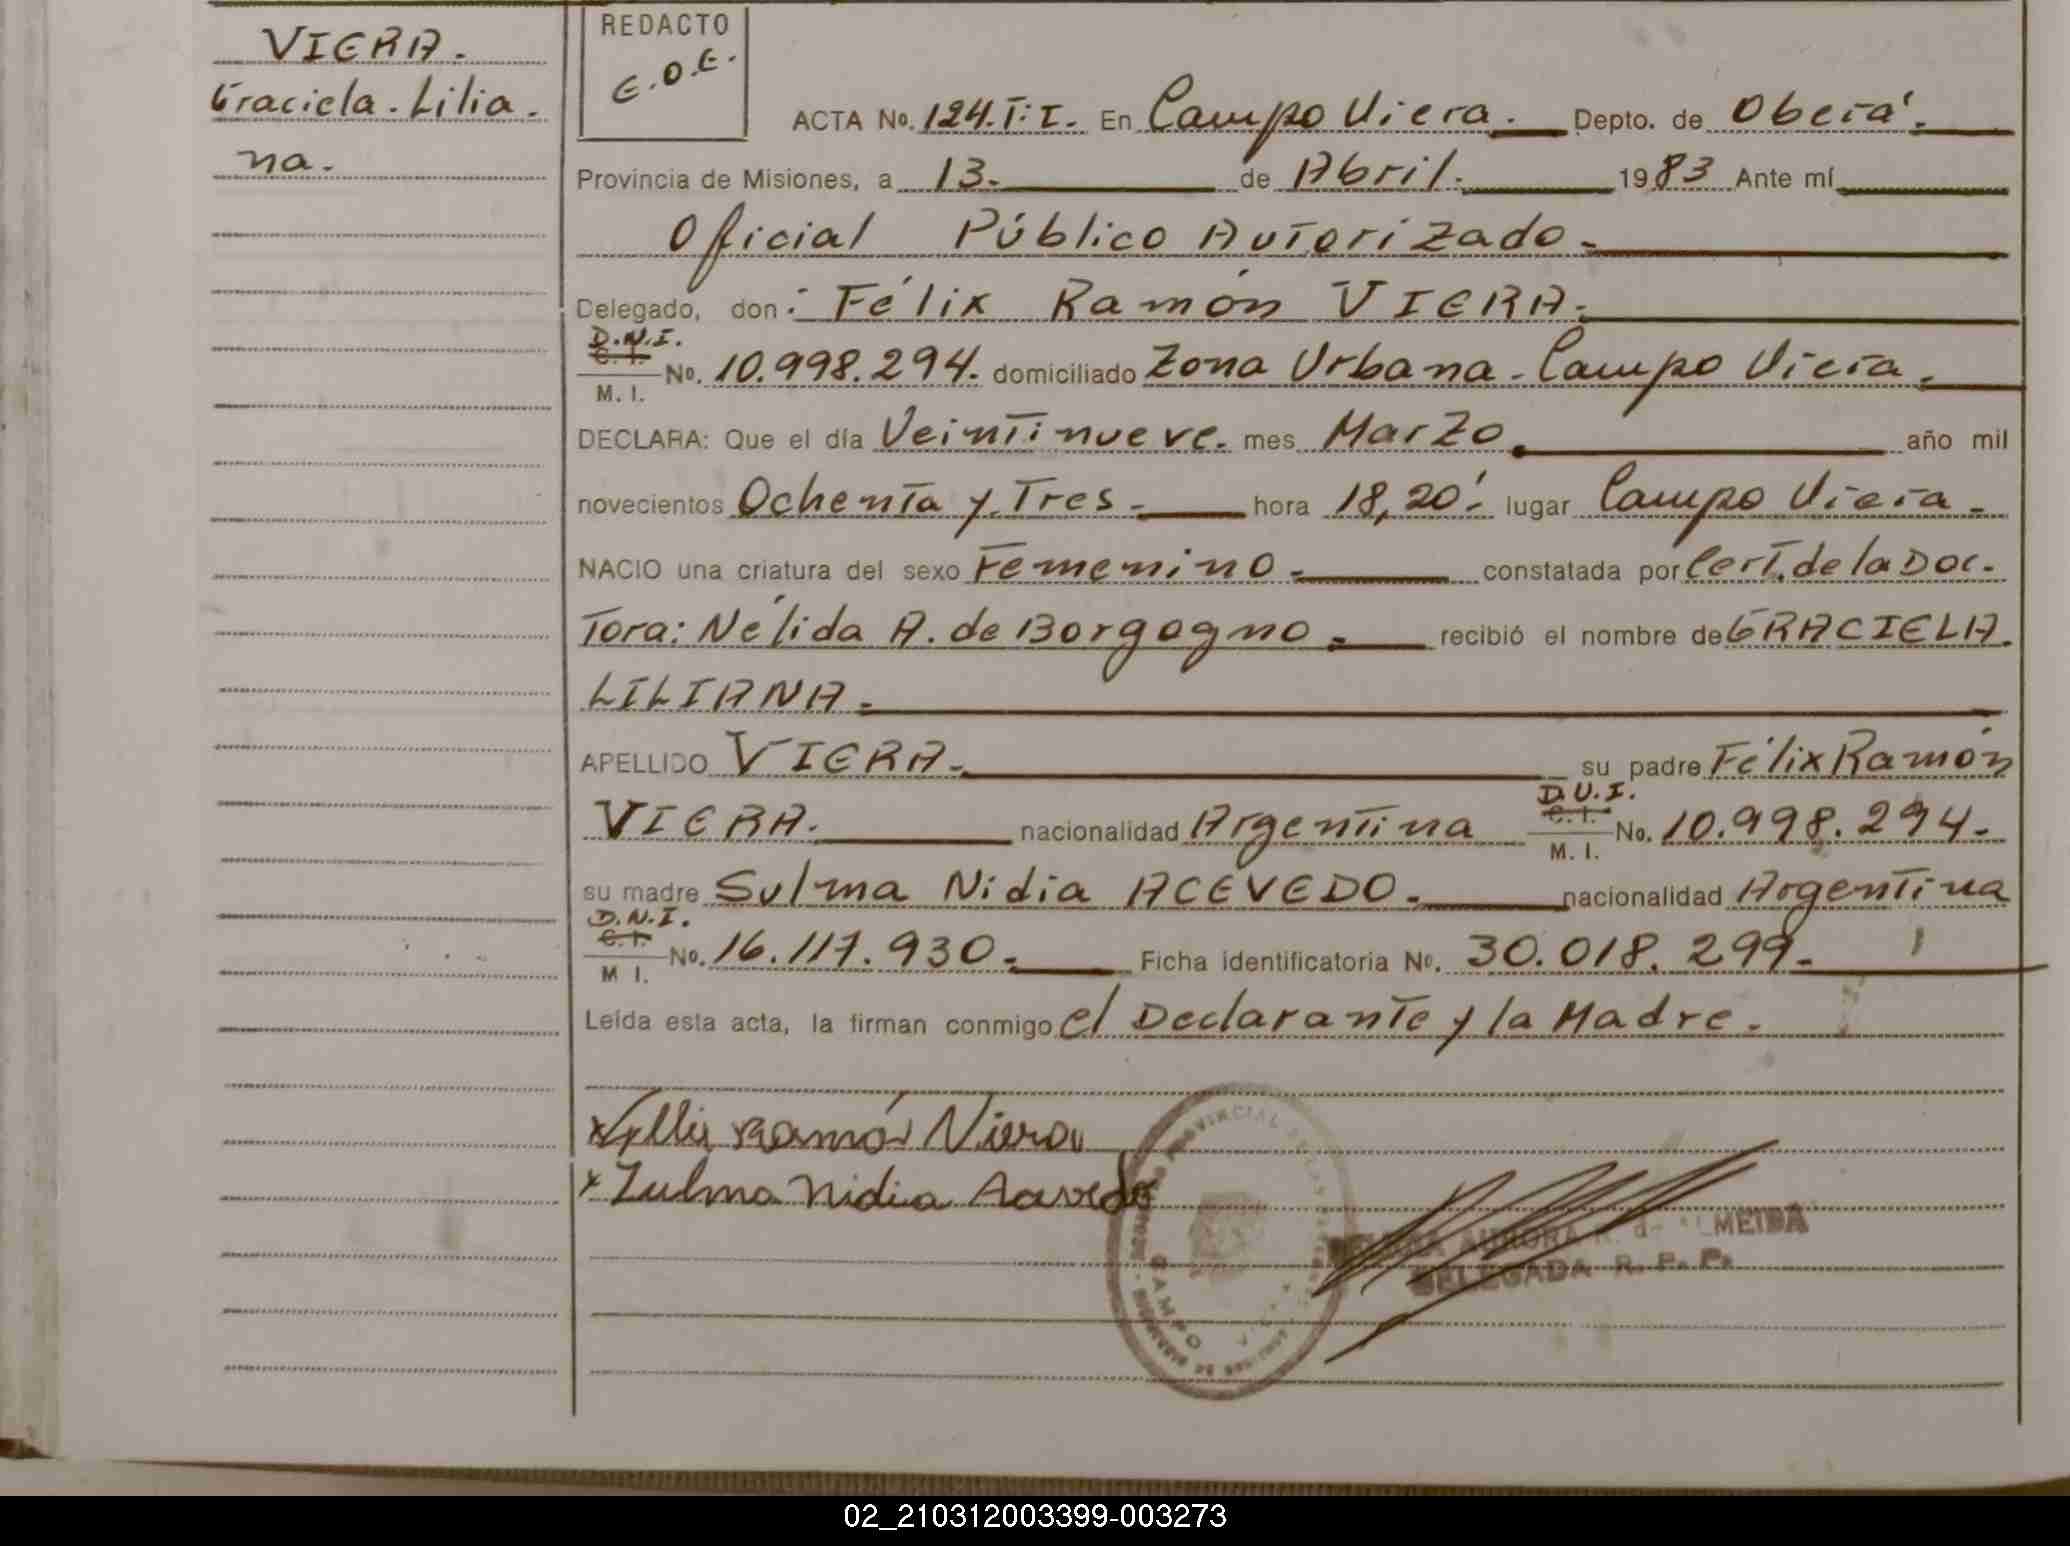 VIERA.
Graciela. Lilia.
na.
REDACTO
E.O.E.
ACTA No. 124.T:I. En Campo Viera. Depto. de Oberá.
Provincia de Misiones, a 13. de Abril. 1983 Ante mí
Oficial Público Autorizado.
Delegado, don: Félix Ramón VIERA.
D.N.I.
C. I.
M. I.
No. 10.998.294. domiciliado Zona Urbana - Campo Viera.
DECLARA: Que el día Veintinueve. mes Marzo. año mil
novecientos Ochenta y Tres. hora 18,20'. lugar Campo Viera.
NACIO una criatura del sexo Femenino. constatada por Cert. de la Doc.
Tora: Nélida A. de Borgogno. recibió el nombre de GRACIELA.
LILIANA.
APELLIDO VIERA. su padre Félix Ramón
D.U.I.
VIERA. nacionalidad Argentina C. I. No. 10.998.294.
M. I.
su madre Sulma Nidia ACEVEDO. nacionalidad Argentina
D.N.I.
C. I. No. 16.117.930. Ficha identificatoria No. 30.018.299.
M I.
Leída esta acta, la firman conmigo el Declarante y la Madre.
Ramón Viera
x Zulma Nidia Acevedo
PROVINCIAL
CAMPO
AURORA R. de ALMEIDA
DELEGADA R. P. P.
02_210312003399-003273